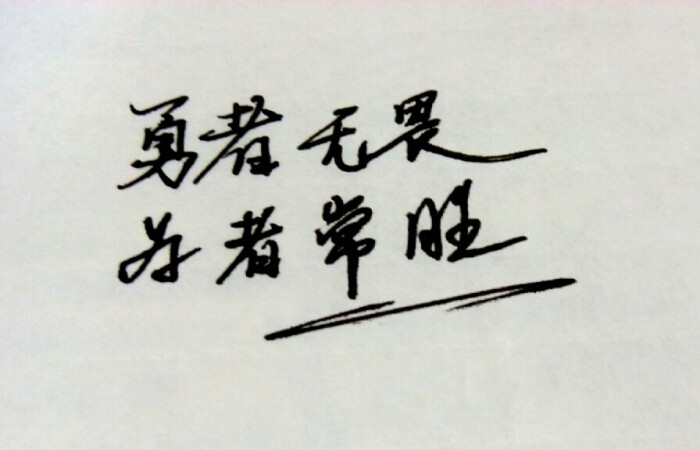 勇者无畏
为者常胜